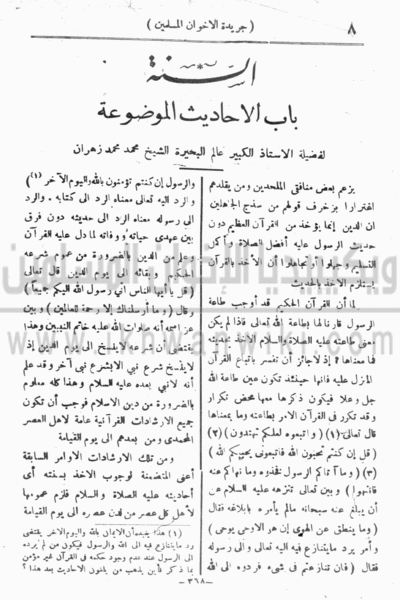 ٨
( جريدة الاخوان المسلمين )
السنة
باب الاحاديث الموضوعة
لفضيلة الاستاذ الكبير عالم البحيرة الشيخ محمد محمد زهران
يزعم بعض منافقى الملحدين ومن يقلدهم
اغترارا بزخرف قولهم من سذج الجاهلين
ان الدين إنما يؤخذ من القرآن العظيم دون
حديث الرسول عليه أفضل الصلاة وأكمل
التسليم وجهلوا أو تجاهلوا أن الأخذ بالقرآن
يستلزم الأخذ بالحديث
لما أن القرآن الحكيم قد أوجب طاعة
الرسول قارنا لها بطاعة الله تعالى فاذا لم يكن
معنى طاعته عليه الصلاة والسلام الأخذ بحديثه
فما معناها ؟ إذ لا جائز أن تفسر باتباع القرآن
المنزل عليه فانها حينئذ تكون عين طاعة الله
جل وعلا فيكون ذكرها معها محض تكرار
وقد تكرر فى القرآن الامر بطاعته وما بمعناها
قال تعالى (١) ( واتبعوه لعلكم تهتدون ) (٢)
( قل إن كنتم تحبون الله فاتبعونى يحببكم الله )
(٣) ( وما آتاكم الرسول فخذوه وما نهاكم عنه
فانتهوا ) وبين تعالى تنزهه عليه السلام عن
أن يبلغ عنه سبحانه مالم يأمره بابلاغه فقال
( وما ينطق عن الهوى إن هو الا وحى يوحى )
وأمر برد مايتنازع فيه اليه تعالى والى رسوله
فقال ( فان تنازعتم فى شىء فردوه الى الله
والرسول إن كنتم تؤمنون بالله واليوم الآخر (١)
والرد اليه تعالى معناه الرد الى كتابه . والرد
الى رسوله معناه الرد الى حديثه دون فرق
بين عهدى حياته ووفاته لما دل عليه القرآن
وعلم من الدين بالضرورة من عموم شرعه
الحكيم وبقائه الى يوم الدين قال تعالى
( قل يا أيها الناس انى رسول الله اليكم جميعا )
وقال ( وما أرسلناك إلا رحمة للعالمين ) وبين
عز اسمه أنه صلوات الله عليه خاتم النبيين وهذا
يقتضى أن شرعه لاينسخ الى يوم الدين إذ
لاينسخ شرع نبى الابشرع نبى آخر وقد علم
أنه لانبى بعده عليه السلام وهذا كله معلوم
بالضرورة من دين الاسلام فوجب أن تكون
جميع الارشادات القرآنية عامة لاهل العصر
المحمدى ومن بعدهم الى يوم القيامة
ومن تلك الارشادات الاوامر السابقة
أعنى المتضمنة لوجوب الاخذ بسنته أى
أحاديثه عليه الصلاة والسلام فلزم عمومها
لأهل كل عصر من لدن عصره الى يوم القيامة
(١) هذا يفيد أن الايمان بالله واليوم الاخر يقتضى
رد مايتنازع فيه الى الله والرسول فيكون من لم يرده
الى الرسول عند عدم وجود حكمه فى القرآن غير مؤمن
بما ذكر فأين يذهب من يلغون الاحاديث بعد هذا ؟
— ٣٦٨ —